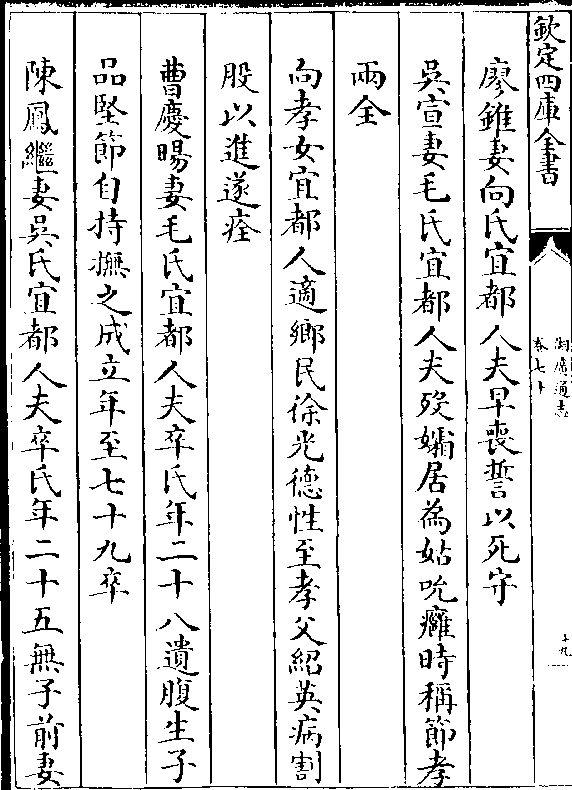 欽定四庫全書
湖廣通志
卷七十
十九
廖錐妻向氏宜都人夫早喪誓以死守
吳宣妻毛氏宜都人夫歿孀居為姑吮癰時稱節孝
兩全
向孝女宜都人適鄉民徐光德性至孝父紹英病割
股以進遂痊
曹慶暘妻毛氏宜都人夫卒氏年二十八遺腹生子
品堅節自持撫之成立年至七十九卒
陳鳳繼妻吳氏宜都人夫卒氏年二十五無子前妻